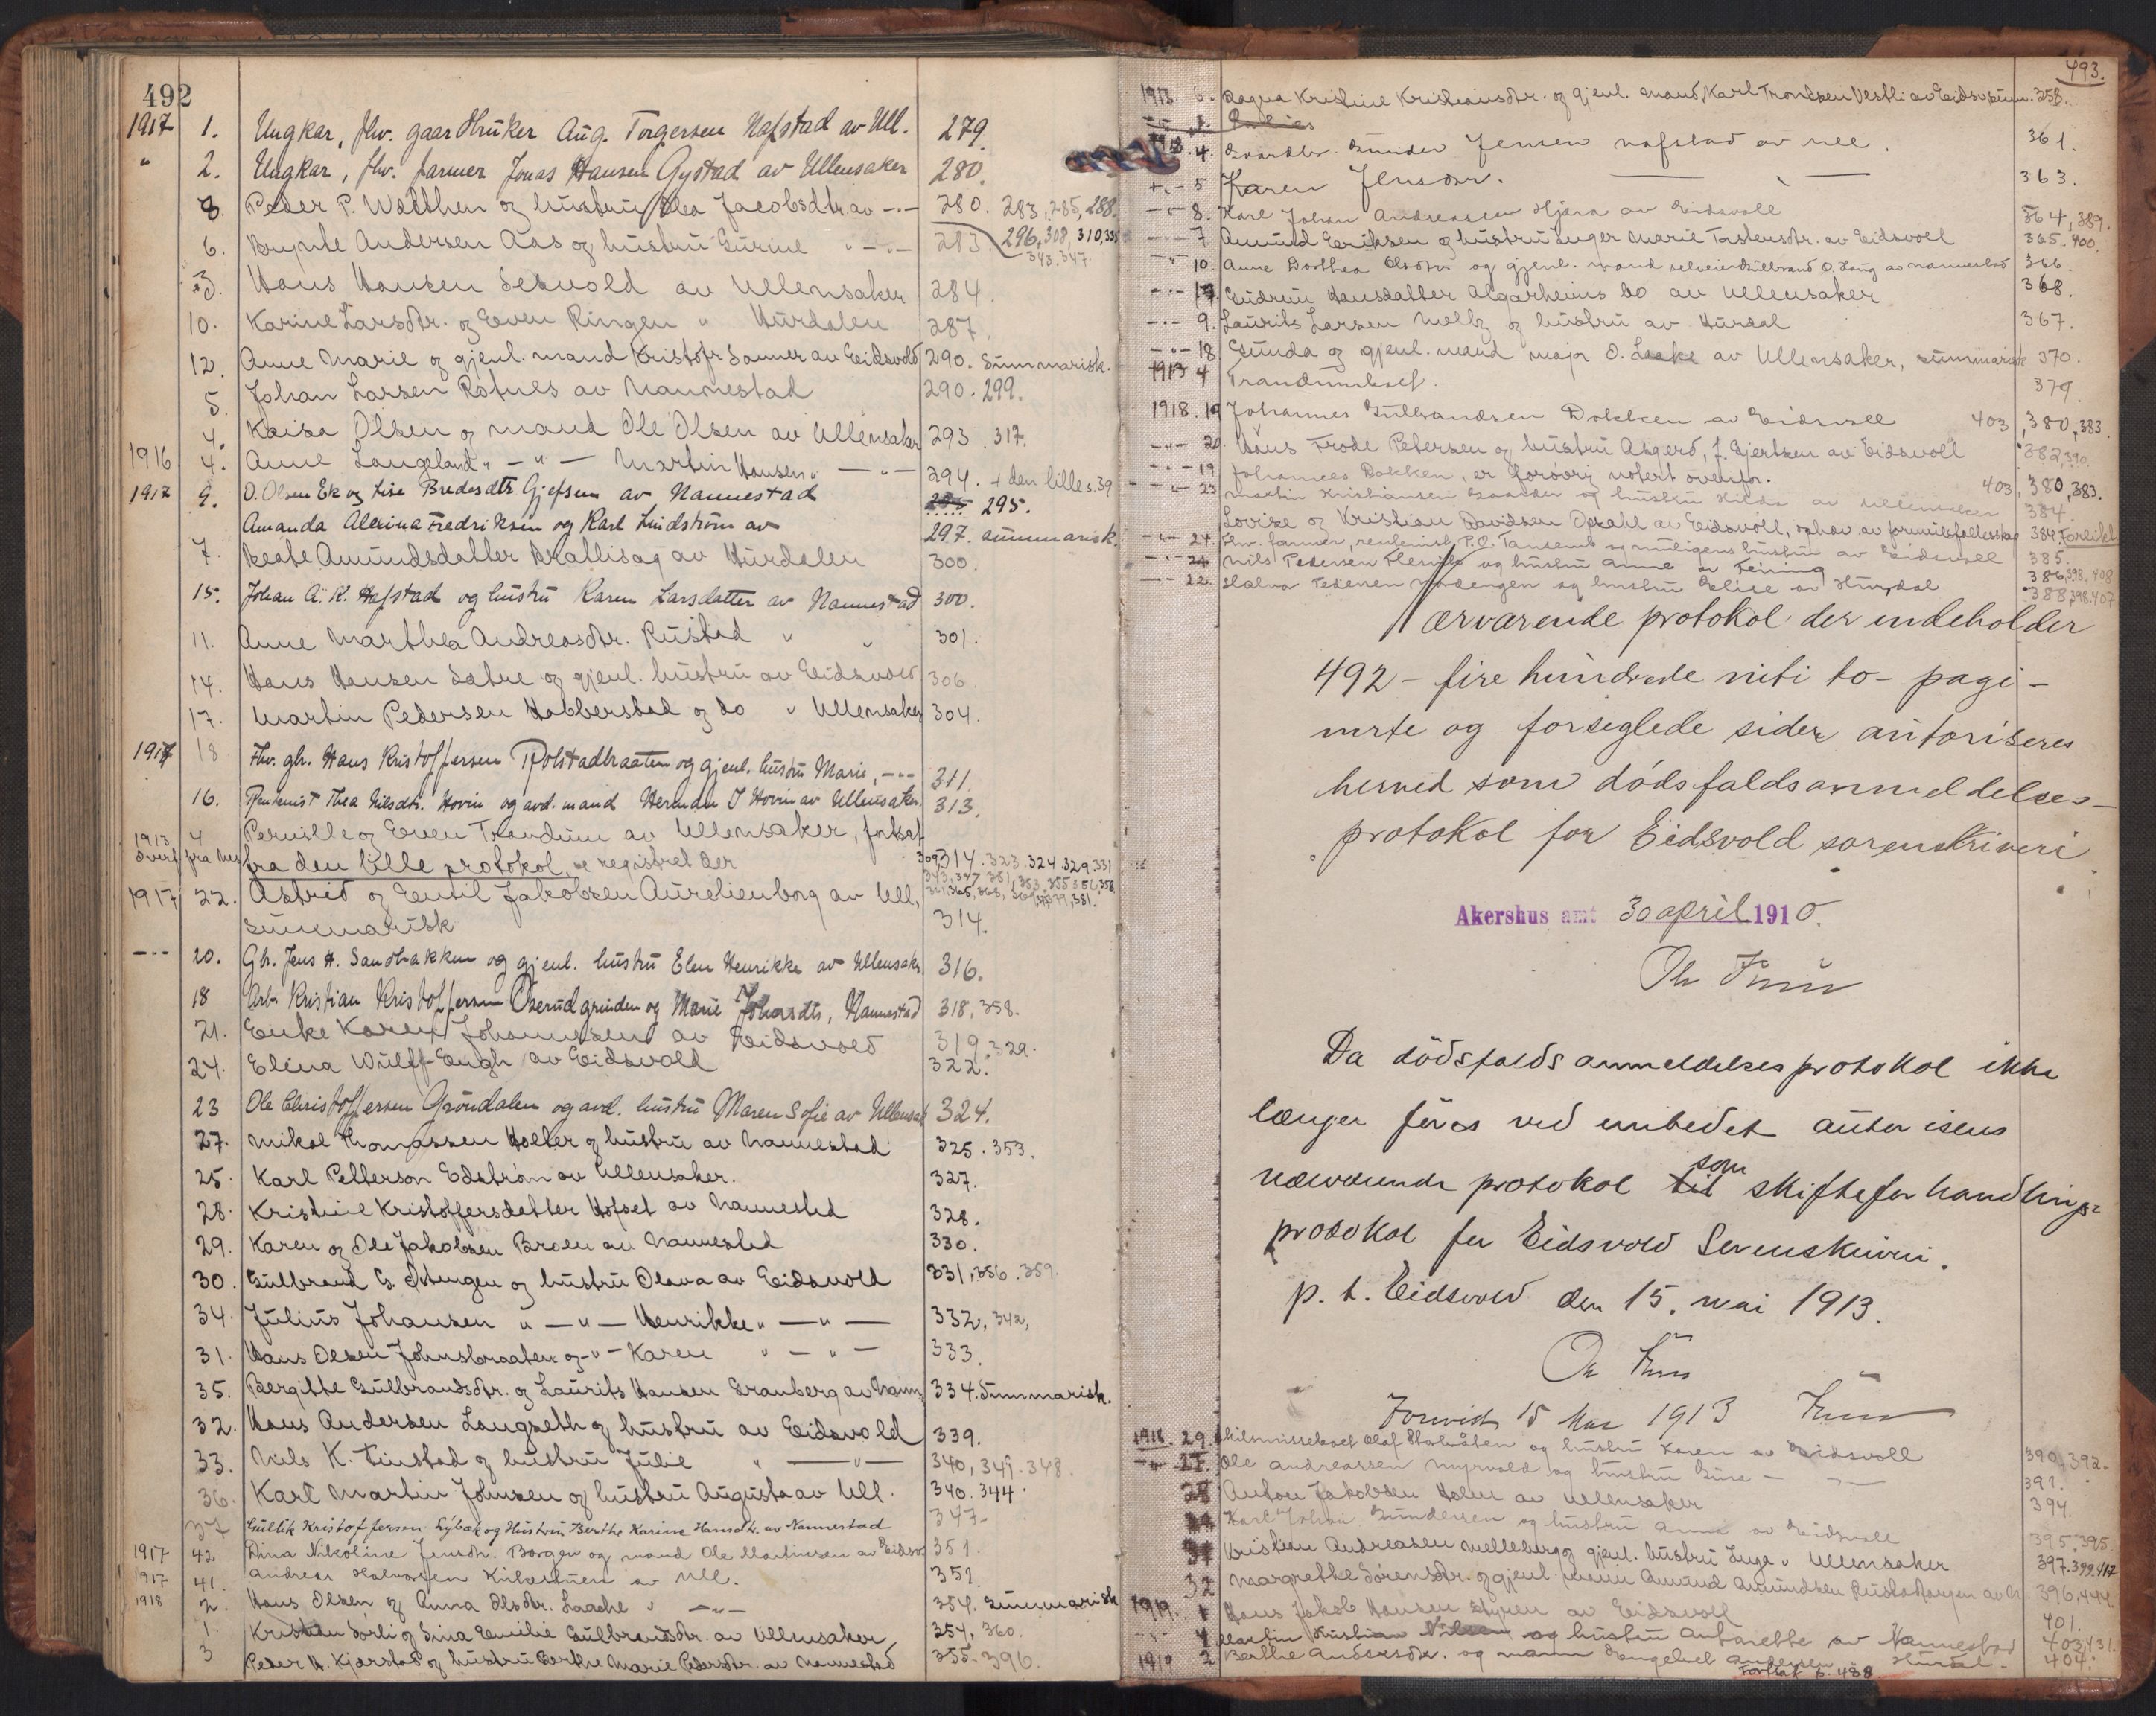 492
1917 1. Ungkar, fhv. gaardbruker Aug. Torgersen Nafstad av Ull. 279.
" 2. Ungkar, fhv. farmer Jonas Hansen Gystad av Ullensaker 280.
8. Peder P. Wolthen og hustru Jacobsdtr. av -"- 280. 283, 285, 288.
296, 308, 310, 335
343. 347.
6. Brynte Andersen Aas og hustru Gurine " -"- 283.
3. Hans Hansen Sesvold av Ullensaker 284.
10. Karine Larsdtr. og Even Ringen " Hurdalen 287.
12. Anne Marie og gjenl. mand Kristofr Sonner av Eidsvold 290. Summarisk.
5. Johan Larsen Rotnes av Nannestad 290. 299.
4. Kaisa Olsen og mand Ole Olsen av Ullensaker 293. 317.
1916 4. Anne Langeland " -"- Martin Hansen " -"- 294. + den lille s. 39
1917 9. O. Olsen Ek og Lise Bredesdtr Gjefsen av Nannestad 295.
Amanda Alexina Fredriksen og Karl Lindstrøm av 297. summarisk.
7. Beate Amundsdatter Brallisag av Hurdalen 300.
15. Johan A. K. Hafstad og hustru Karen Larsdatter av Nannestad 300.
11. Anne Marthea Andreasdtr. Rustad " " 301.
14. Hans Hansen Sætre og gjenl. hustru av Eidsvold 306.
17. Martin Pedersen Habberstad og do " Ullensaker 304.
1917 18 Fhv. gbr. Hans Kristoffersen Rolstadbraaten og gjenl. hustru Marie, -"- 311.
16. Rentenist Thea Nilsdtr. Hovin og avd. mand Herman J Hovin av Ullensaker. 313.
1913 4 Pernille og Even Trandum av Ullensaker, fortsat
overf fra den lille protokol, se registret der 309, 314. 323. 324. 329. 331
343, 347 351, 353, 355 356, 358
361, 365, 368, 369, 379, 381.
1917 22. Astrid og Emil Jakobsen Aurelienborg av Ull,
summarisk 314.
-"- 20. Gbr. Jens H. Sandbakken og gjenl. hustru Elen Henrikke av Ullensaker 316.
18 Arb. Kristian Kristoffersen Oserudgrinden og Marie Johansdtr, Nannestad 318, 358.
21. Enke Karen Johannesen av Eidsvold 319, 329.
24. Elina Wulff-Engh av Eidsvold 322.
23 Ole Christoffersen Grøndalen og avd. hustru Maren Sofie av Ullensak 324.
27. Mikal Thomassen Holter og hustru av Nannestad 325. 353.
25. Karl Petterson Edstrøm av Ullensaker. 327.
28. Kristine Kristoffersdatter Hofset av Nannestad 328.
29. Karen og Ole Jakobsen Broen av Nannestad 330.
30. Gulbrand G. Østengen og hustru Olava av Eidsvold 331, 356. 359.
34. Julius Johansen " -"- Henrikke " -"- 332, 342,
31. Hans Olsen Johnsbraaten og -"- Karen " -"- 333.
35. Bergitte Gulbrandsdtr. og Laurits Hansen Granberg av Nann. 334. Summarisk.
32. Hans Andersen Langseth og hustru av Eidsvold 339.
33. Nils K. Finstad og hustru Julie " -"- 340, 341. 348.
36. Karl Martin Johnsen og hustru Augusta av Ull. 340. 344.
37 Gullik Kristoffersen Lybæk og Hustru Berthe Karine Hansdtr. av Nannestad 347-
1917 42 Dina Nikoline Jensdtr. Borgen og mand Ole Martinsen av Eidsv 351.
1917 41. Andreas Halvorsen av Ull. 352.
1918 2. Hans Olsen og Anna Olsdtr. Laache " -"- 354. Summarisk
1. Kristian Sørli og Sina Emilie Gulbrandsdtr. av Ullensaker 354, 360.
3 Peder H. Kjærstad og hustru Berthe Marie Pedersdtr. av Nannestad 355. 396.
493.
1918. 6. Dagna Kristine Kristiansdtr. og gjenl. mand, Karl Trondsen Vestli av Eidsv 258.
4. Gaardbr. Gunder Jensen Nafstad av Ull. 361.
-"- 5 Karen Jensdtr. — " — 363.
-"- 8. Karl Johan Andreassen Hjera av Eidsvoll 364, 389.
-"- 7 Amund Eriksen og hustru Inger Marie Torstensdtr. av Eidsvoll 365. 400.
-"- 10 Anne Dorthea Olsdtr. og gjenl. mand selveier Gulbrand O. Haug av Nannestad 366.
Gudrun Hansdatter Algarheims bo av Ullensaker 368.
-"- 9. Laurits Larsen Melby og hustru av Hurdal 367.
-"- 18 Gunda og gjenl. mand major O. Laake av Ullensaker, summarisk 370.
1913 4 Trandumboet. 379.
1918. 19 Johannes Gulbrandsen Dokken av Eidsvoll 403, 380, 383.
-"- 20. Hans Frode Petersen og hustru Asgerd, f. Gjertsen av Eidsvoll 382, 390.
-"- 19 Johannes Dokken, er forøvrig notert ovenfor. 403, 380, 383.
-"- 23 Martin Kristiansen Gaarder og hustru Hilda av Ullensaker 384.
Lovise og Kristian Davidsen Oprahl av Eidsvoll, ophæv. av formuesfællesskap 384. Forlikt.
-"- 24. Fhv. farmer, rentenist P.O. Tansemb og muligens hustru av Eidsvoll 385.
-"- 24 Nils Pedersen og hustru Anne av Feiring 386, 398, 408
-"- 22. Halvor Pedersen og hustru Elise av Hurdal 388, 398. 407
Nærværende protokol der indeholder
492 - fire hundrede niti to - pagi-
nerte og forseglede sider autoriseres
herved som dødsfaldsanmeldelses-
protokol for Eidsvold sorenskriveri
Akershus amt 30 april 1910.
Da dödsfaldsanmeldelsesprotokol ikke
længer föres ved embedet autoriseres
nærværende protokol til som skifteforhandlings-
protokol for Eidsvold Sorenskriveri.
p. t. Eidsvold den 15. mai 1913.
Forevist 15 Mai 1913
1918. 29. Skilsmisseboet Olaf og hustru Karen av Eidsvoll 390, 392.
-"- 27. Ole Andreassen Myrvold og hustru Gina — " — 391.
28 Anton Jakobsen Holm av Ullensaker 394.
Karl Johan Gundersen og hustru Anna av Eidsvoll 395, 395.
31 Kristian Andreassen Melleberg og gjenl. hustru Inga " Ullensaker 397. 399, 417
32 Margrethe Sørensdtr. og gjenl. mann Amund Amundsen 396, 444.
1919. 1 Hans Jakob Hansen Styren av Eidsvoll 401.
-"- 4 Martin Kristian Nilsen og hustru Antonette av Nannestad 403, 431.
1919 2 Berthe Andersdtr. og mann Engebret Andersen Hurdal. 404.
Fortsat s. 488